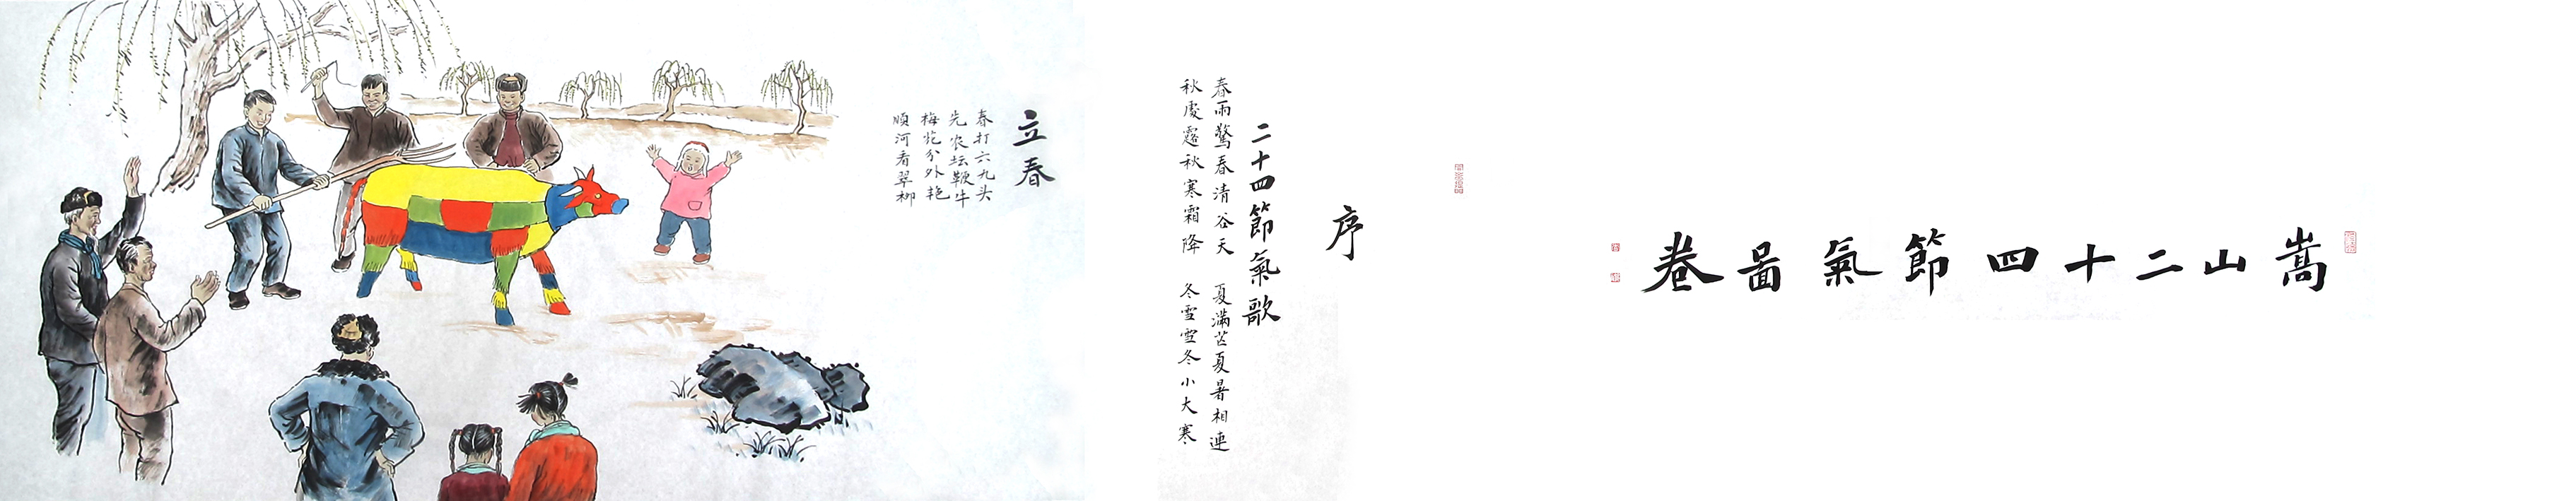 嵩山二十四節氣圖卷
序
二十四節氣歌
春雨驚春清谷天 夏滿芒夏暑相連
秋處露秋寒霜降 冬雪雪冬小大寒
立春
春打六九头
先农坛鞭牛
梅花分外艳
順河看翠柳